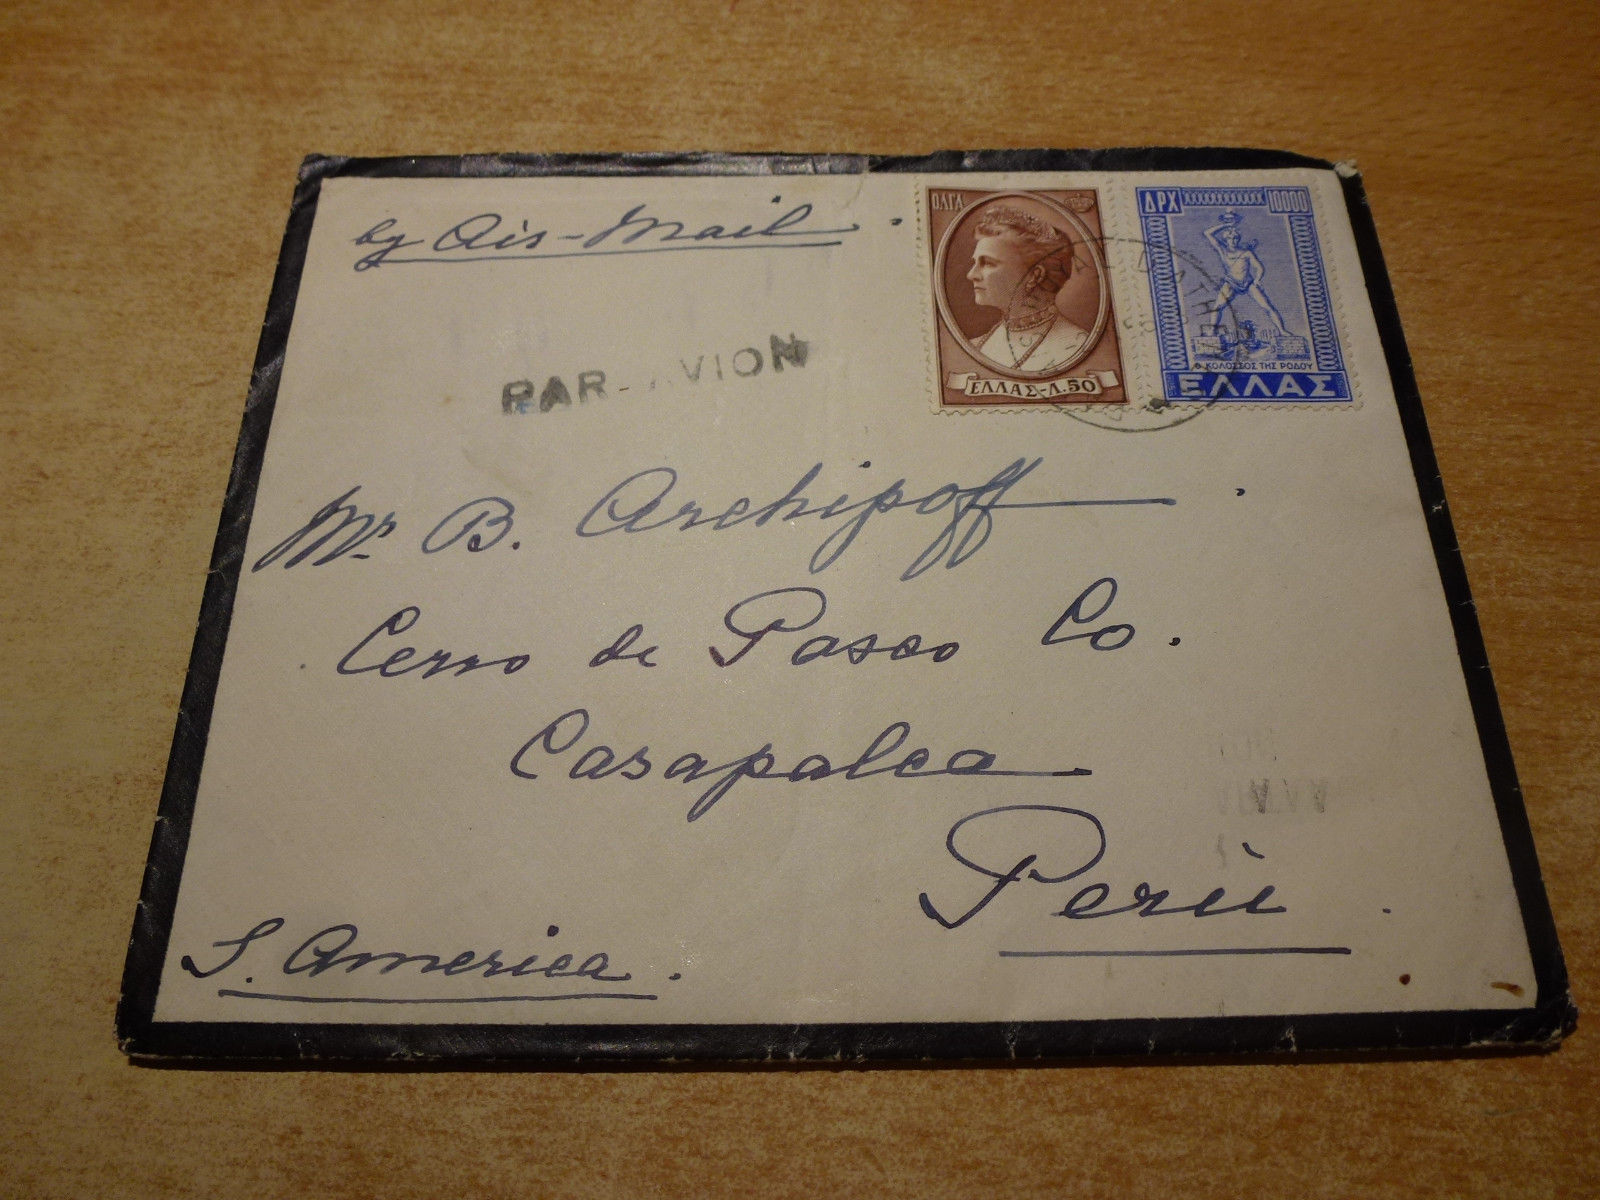 by Air-Mail
PAR-AVION
ΟΛΓΑ
ΕΛΛΑΣ-Λ.50
ΔΡΧ 10000
Ο ΚΟΛΟΣΣΟΣ ΤΗΣ ΡΟΔΟΥ
ΕΛΛΑΣ
Mr B. Archipoff
Cerro de Pasco Co.
Casapalca
Perù
S. America.